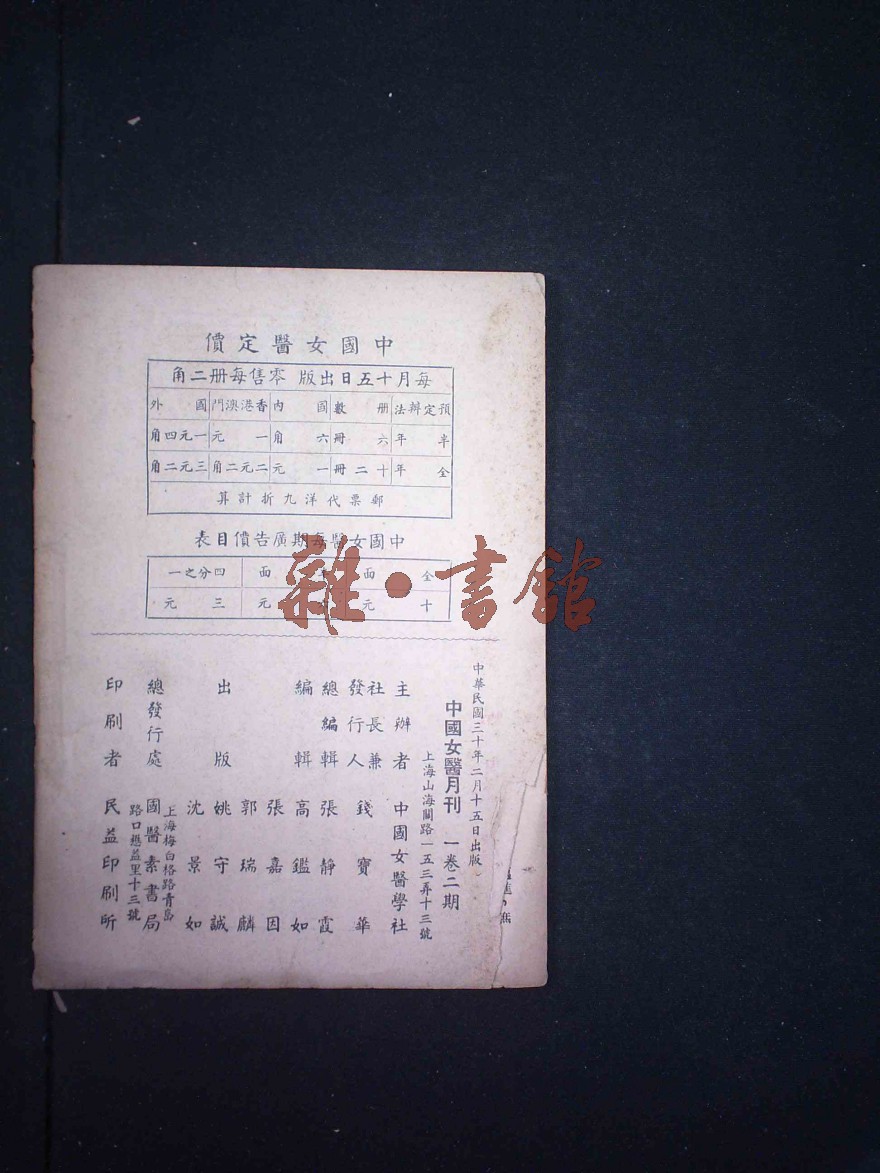 中國女醫定價
每月十五日出版 零售每册二角
預定辦法 册數 國內 香港澳門 國外
半年 六冊 六角 一元 一元四角
全年 十二冊 一元 二元二角 三元二角
郵票代洋九折計算
中國女醫每期廣告價目表
全面 面 四分之一
十元 元 三元
雜·書館
中華民國三十年二月十五日出版
中國女醫月刊 一卷二期
上海山海關路一五三弄十三號
主辦者 中國女醫學社
社長兼發行人 錢寶華
總編輯 張靜霞
編輯 高鑑如
張嘉因
郭瑞麟
出版 姚守誠
沈景如
總發行處 國醫素書局
上海梅白格路青島
路口懋益里十三號
印刷者 民益印刷所